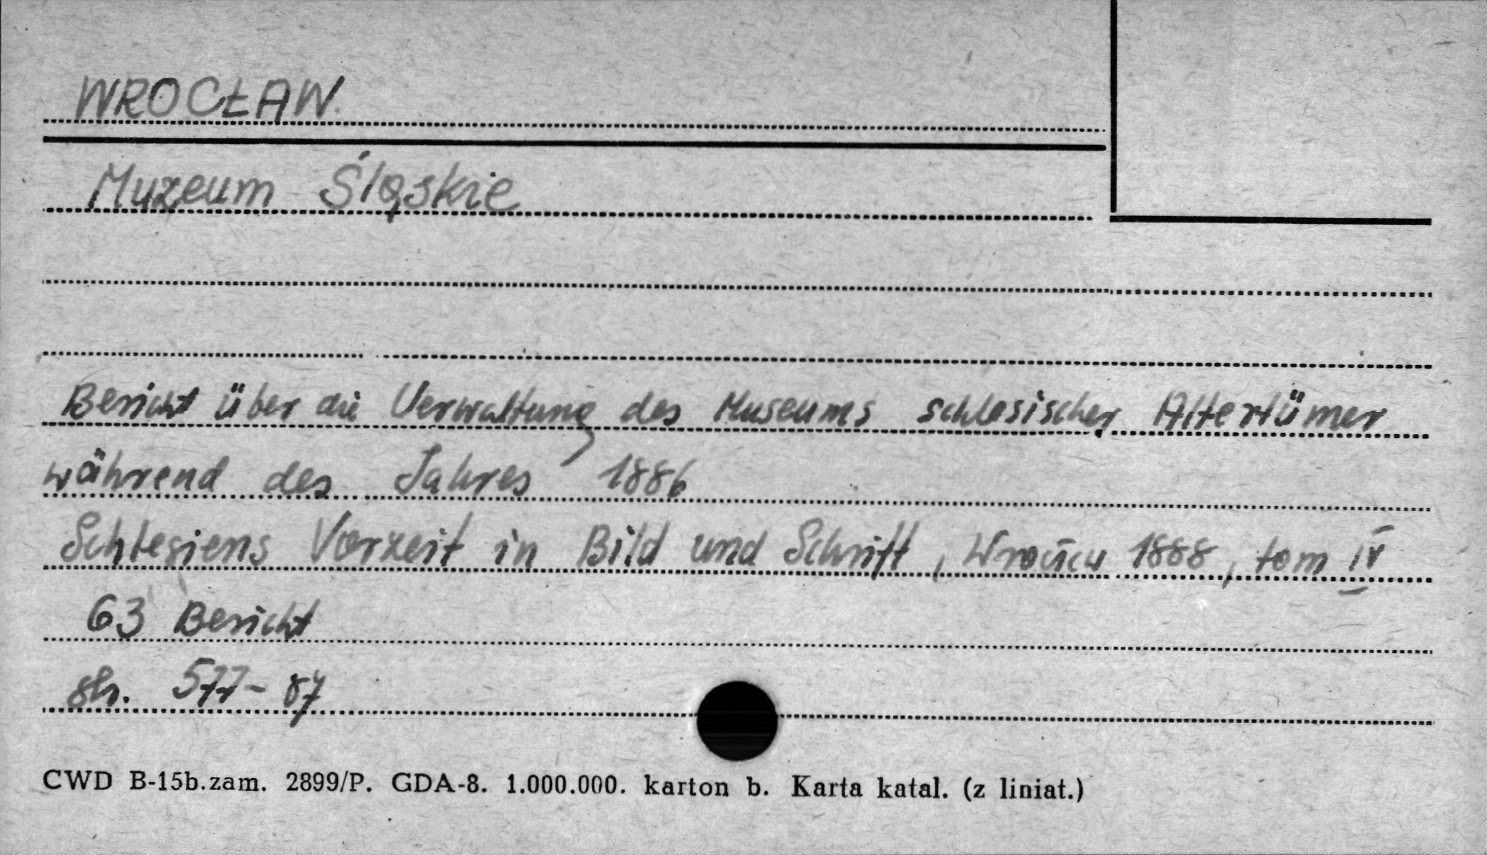 WROCŁAW
Muzeum Śląskie
Bericht über die Verwaltung des Museums schlesischer Altertümer
während des Jahres 1886
Schlesiens Vorzeit in Bild und Schrift, 1888, tom IV
63 Bericht
str. 577-87
CWD B-15b.zam. 2899/P. GDA-8. 1.000.000. karton b. Karta katal. (z liniat.)